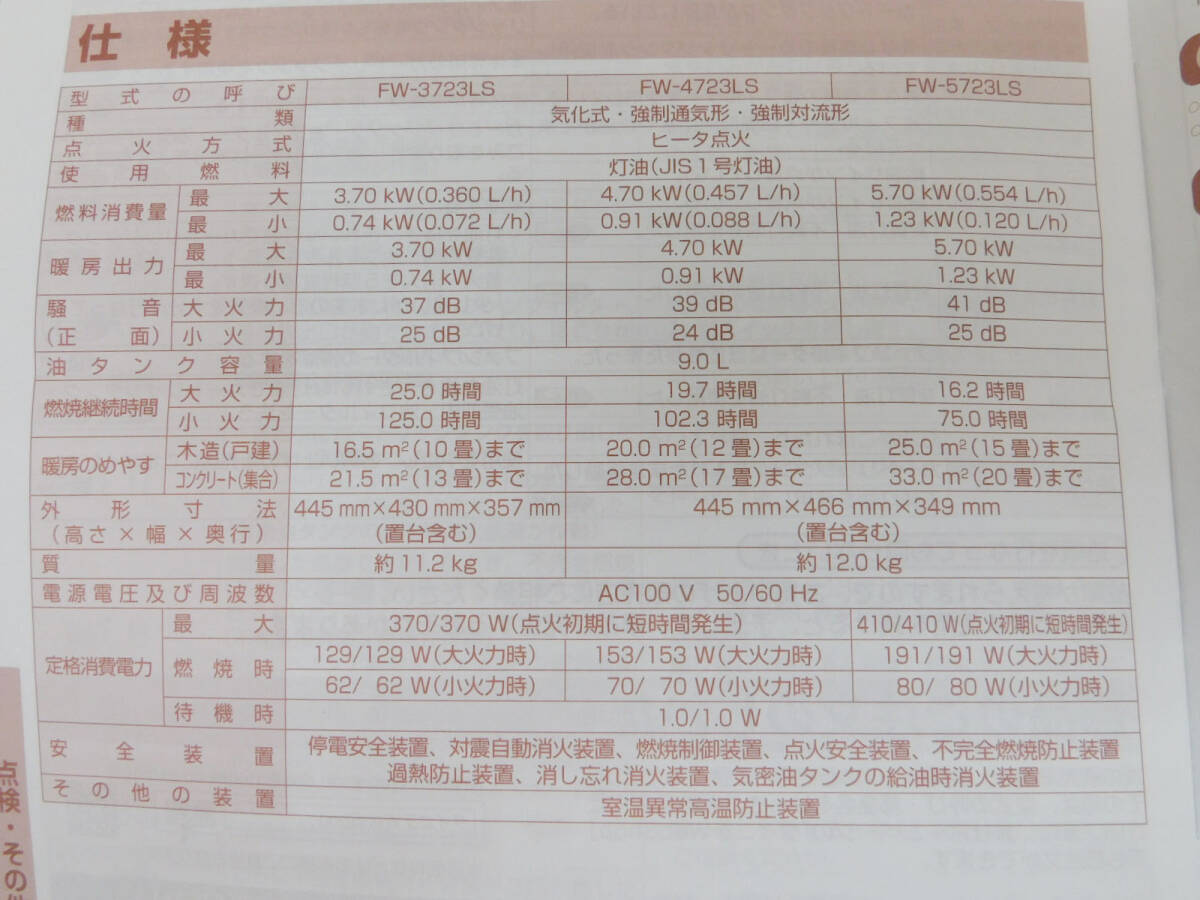 仕様
型式の呼び FW-3723LS FW-4723LS FW-5723LS
種類 気化式・強制通気形・強制対流形
点火方式 ヒータ点火
使用燃料 灯油(JIS1号灯油)
燃料消費量 最大 3.70 kW(0.360 L/h) 4.70 kW(0.457 L/h) 5.70 kW(0.554 L/h)
最小 0.74 kW(0.072 L/h) 0.91 kW(0.088 L/h) 1.23 kW(0.120 L/h)
暖房出力 最大 3.70 kW 4.70 kW 5.70 kW
最小 0.74 kW 0.91 kW 1.23 kW
騒音 大火力 37 dB 39 dB 41 dB
(正面) 小火力 25 dB 24 dB 25 dB
油タンク容量 9.0 L
燃焼継続時間 大火力 25.0 時間 19.7 時間 16.2 時間
小火力 125.0 時間 102.3 時間 75.0 時間
暖房のめやす 木造(戸建) 16.5 m²(10 畳)まで 20.0 m²(12 畳)まで 25.0 m²(15 畳)まで
コンクリート(集合) 21.5 m²(13 畳)まで 28.0 m²(17 畳)まで 33.0 m²(20 畳)まで
外形寸法 445 mm×430 mm×357 mm 445 mm×466 mm×349 mm
(高さ×幅×奥行) (置台含む) (置台含む)
質量 約11.2 kg 約12.0 kg
電源電圧及び周波数 AC100 V 50/60 Hz
定格消費電力 最大 370/370 W(点火初期に短時間発生) 410/410 W(点火初期に短時間発生)
燃焼時 129/129 W(大火力時) 153/153 W(大火力時) 191/191 W(大火力時)
62/ 62 W(小火力時) 70/ 70 W(小火力時) 80/ 80 W(小火力時)
待機時 1.0/1.0 W
安全装置 停電安全装置、対震自動消火装置、燃焼制御装置、点火安全装置、不完全燃焼防止装置
過熱防止装置、消し忘れ消火装置、気密油タンクの給油時消火装置
その他の装置 室温異常高温防止装置
点検・その